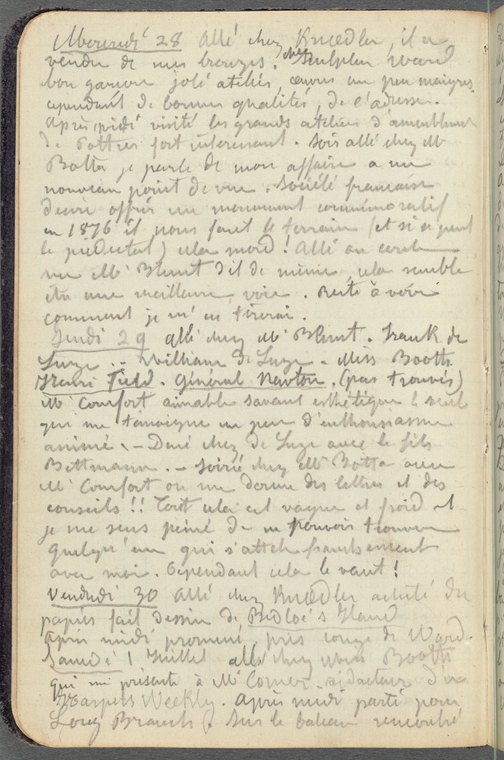 Mercredi 28 Allé chez Knoedler, il a
vendu de mes bronzes. chez Sculpteur Ward
bon garçon joli atelier, œuvres un peu maigres
cependant de bonnes qualités, de l'adresse.
après midi visité les grands ateliers d'ameublement
de Pottier fort intéressant. Soir allé chez Mme
Botta je parle de mon affaire a un
nouveau point de vue. Société française
désire offrir un monument commémoratif
en 1876 il nous faut le terrain (et si se peut
le piédestal) cela mord! Allé au cercle
vu Mr Blunt dit de même, cela semble
être une meilleure voie. Reste à voir
comment je m'en tirerai.
Jeudi 29 allé chez Mr Blunt. Frank de
Luze .. William de Luze. Miss Booth
Henri Field. Général Newton. (pas trouvés)
Mr Comfort aimable savant esthétique! seul
qui me témoigne un peu d'enthousiasme
animé. – Diné chez de Luze avec le fils
Bettmann. – Soirée chez Mme Botta avec
Mr Comfort on me donne des lettres et des
conseils!! Tout cela est vague et froid et
je me sens peiné de ne pouvoir trouver
quelqu'un qui s'attele franchement
avec moi. Cependant cela le vaut!
Vendredi 30 Allé chez Knoedler acheté du
papier fait dessin de Bedloe's Island
après midi promené, pris congé de Ward
Samedi 1 Juillet allé chez Miss Booth
qui me présente à Mr Conner rédacteur du
Harpers Weekly. Après midi parti pour
Long Branch. Sur le bateau rencontré